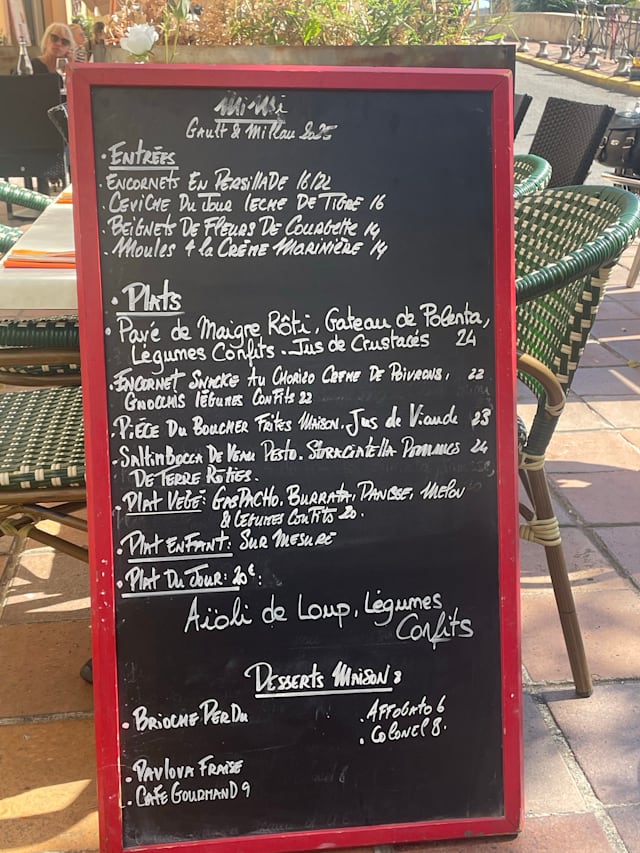 Mi-Mi
Gault & Millau 2025
. ENTRÉES
. ENCORNETS EN PERSILLADE 16/22
. CEVICHE DU JOUR LECHE DE TIGRE 16
. BEIGNETS DE FLEURS DE COURGETTE 14
. MOULES A la CRÈME MARINIÈRE 14
. PLATS
. Pavé de Maigre Rôti, Gateau de Polenta,
Légumes Confits . Jus de Crustacés 24
. ENCORNET SNACKÉ AU CHORIZO CREME DE POIVRONS, 22
GNOCCHIS LÉGUMES CONFITS 22
. PIÈCE DU BOUCHER FRITES MAISON. Jus de Viande 23
. SALTIMBOCCA DE VEAU PESTO. STRACIATELLA POMMES 24
DE TERRE ROTIES.
. PLAT VÉGÉ: GASPACHO. BURRATA, PANISSE, MELON
& LEGUMES CONFITS 20.
. PLAT ENFANT: SUR MESURE
. PLAT DU JOUR: 20€:
Aïoli de Loup, Légumes
Confits
DESSERTS MAISON 8
. BRIOCHE PERDU
. AFFOGATO 6
. COLONEL 8.
. PAVLOVA FRAISE
. CAFE GOURMAND 9